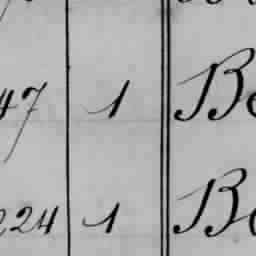 47 1 Be
224 1 Be